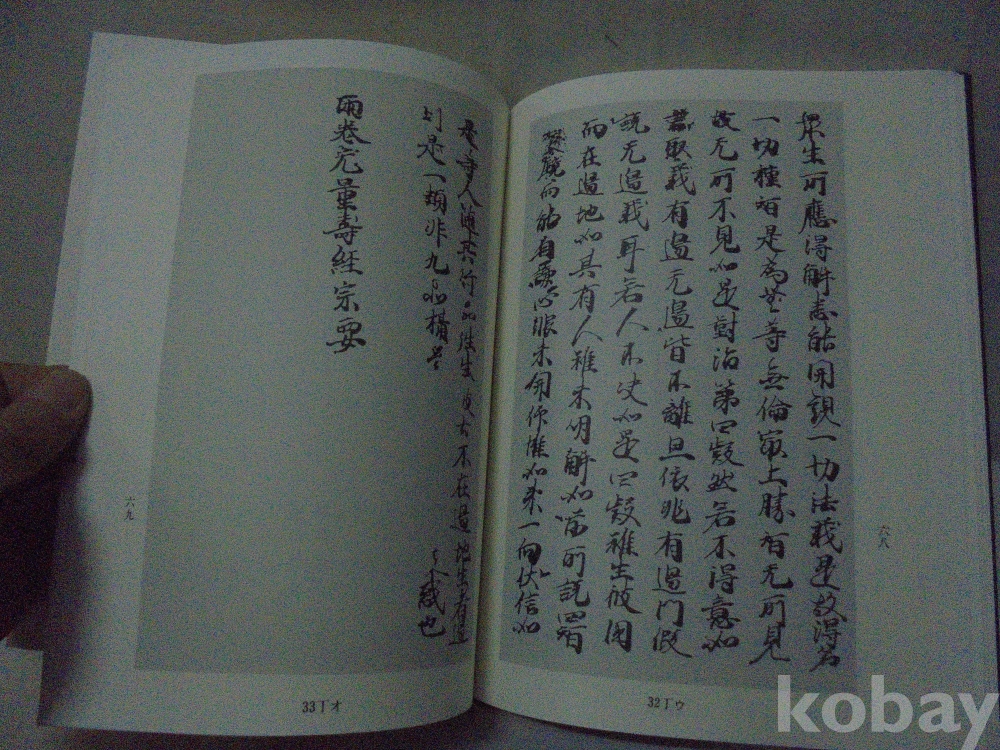 衆生所應得解悉能開説一切法義是故得名
一切種智是為无等無倫最上勝智无所見
故无所不見如是對治第四疑然若不得意如
言取義有邊无邊皆不離過且依非有邊門假
説无邊義耳若人不決如是四疑雖生彼國
而在邊地如其有人雖未明解如前所説四智
而能自
心眼未開作惟如来一向伏信如
是等人随其行品往生
不在邊地生着邊
別是一類非九品攝
也
両卷无量壽経宗要
六八
六九
32丁ウ
33丁オ
kobay